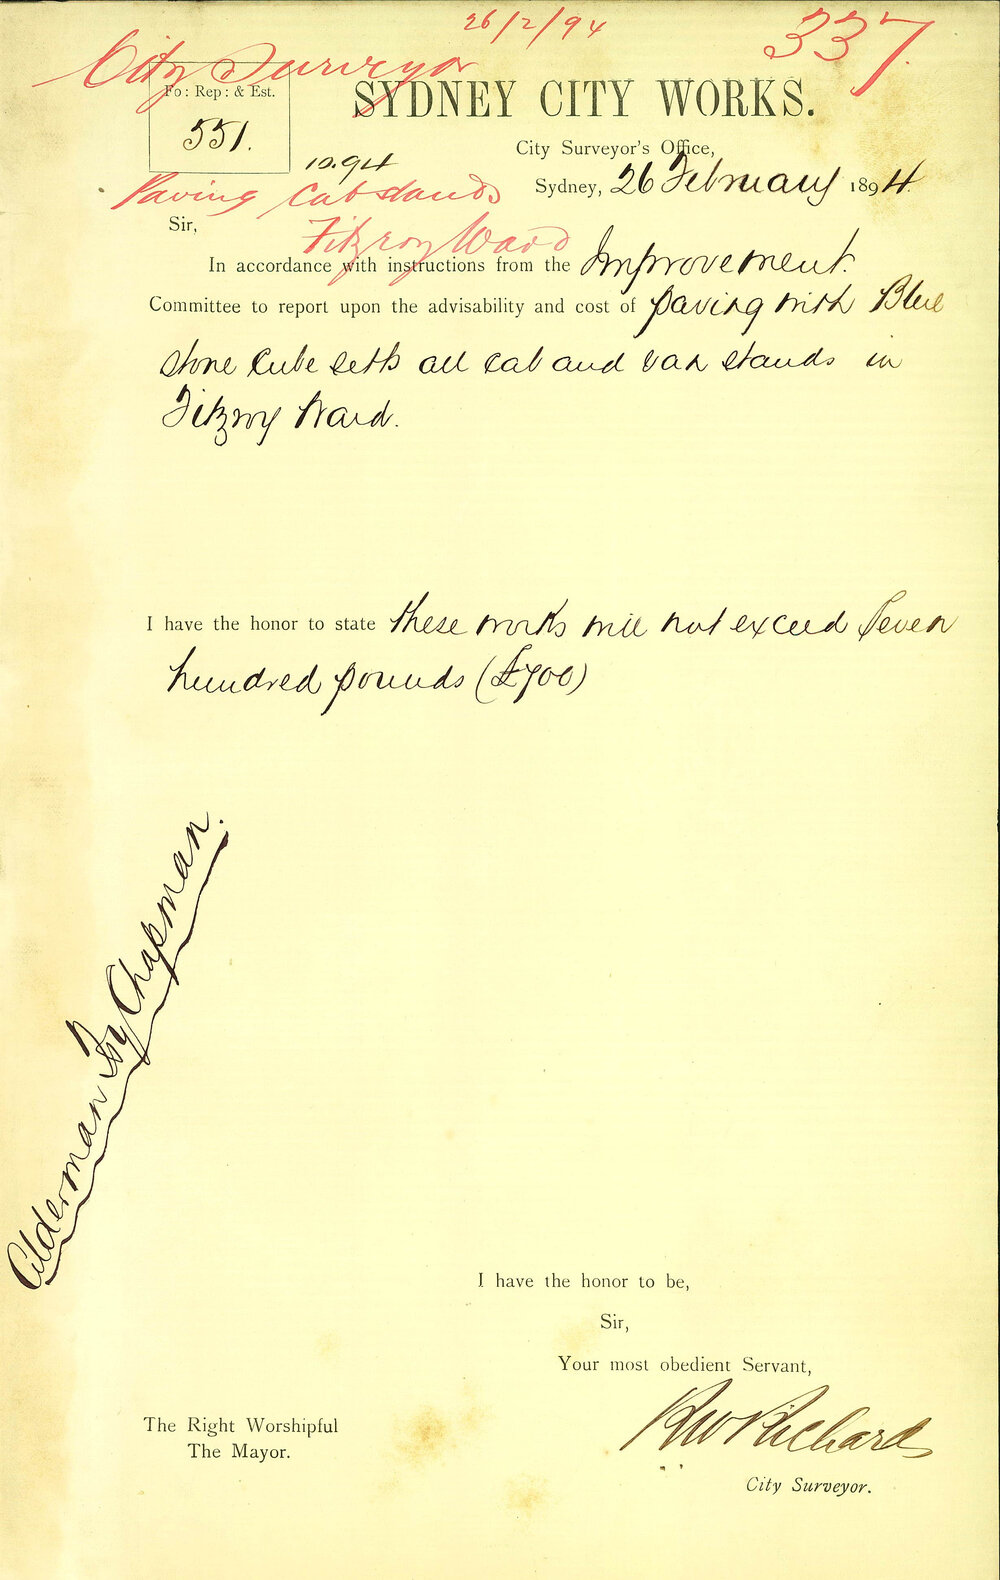 26/2/94
337.
City Surveyor
Fo: Rep: & Est.
551.
SYDNEY CITY WORKS.
City Surveyor's Office,
10.94
Sydney, 26 February 1894
Paving Cabstands
Sir,
Fitzroy Ward
In accordance with instructions from the Improvement.
Committee to report upon the advisability and cost of paving with Blue
stone Cube Setts all cab and van stands in
Fitzroy Ward.
I have the honor to state these works will not exceed Seven
hundred pounds (£700)
Alderman Chapman.
I have the honor to be,
Sir,
Your most obedient Servant,
The Right Worshipful
The Mayor.
RW Richards
City Surveyor.